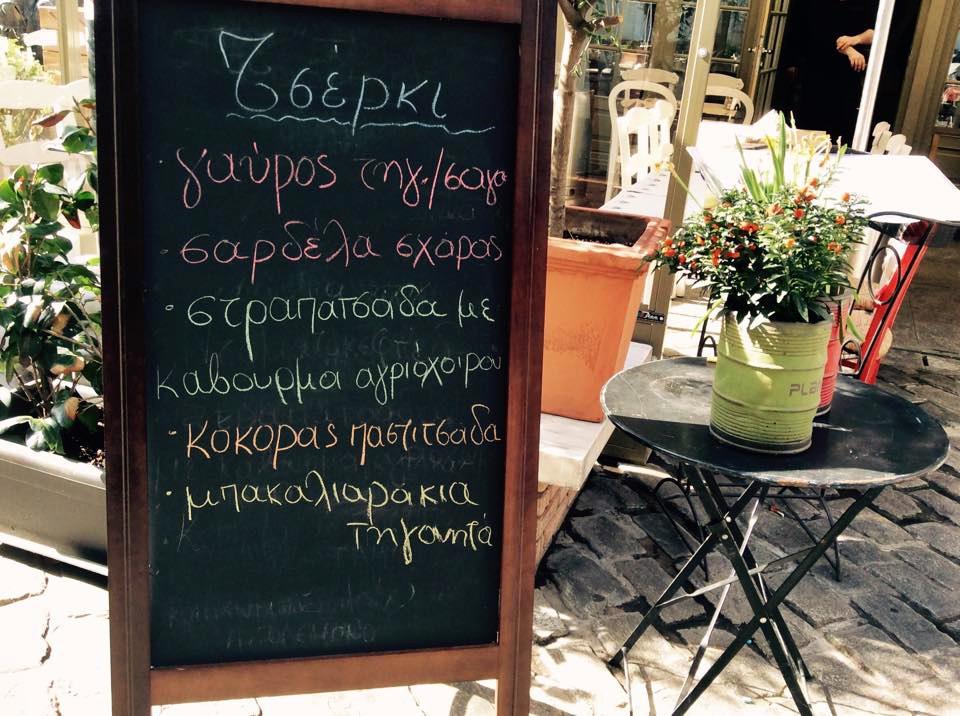 Τσέρκι
· γαύρος τηγ./σαγα
· σαρδέλα σχάρας
· στραπατσάδα με
καβουρμα αγριόχοιρου
· κόκορας παστιτσάδα
· μπακαλιαράκια
τηγανητά